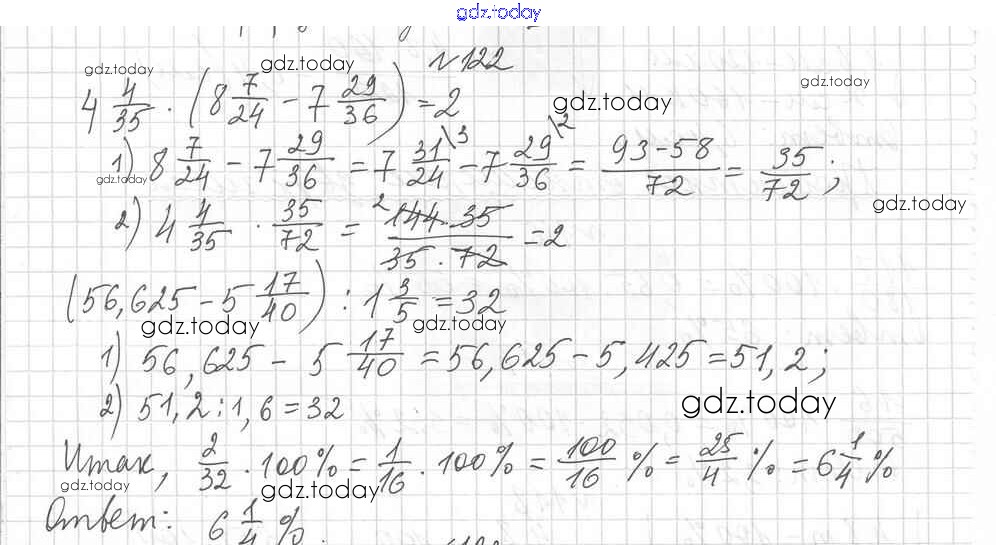 gdz.today
№122
gdz.today gdz.today gdz.today
4 4/35 · (8 7/24 − 7 29/36) = 2
gdz.today
1) 8 7/24 − 7 29/36 = 7 31/24\3 − 7 29/36\2 = (93−58)/72 = 35/72;
gdz.today gdz.today
2) 4 4/35 · 35/72 = (144·35)/(35·72) 2 = 2
(56,625 − 5 17/40) : 1 3/5 = 32
gdz.today gdz.today
1) 56,625 − 5 17/40 = 56,625 − 5,425 = 51,2;
2) 51,2 : 1,6 = 32
gdz.today
Итак, 2/32 · 100% = 1/16 · 100% = 100/16 % = 25/4 % = 6 1/4 %
gdz.today gdz.today
Ответ: 6 1/4 %.